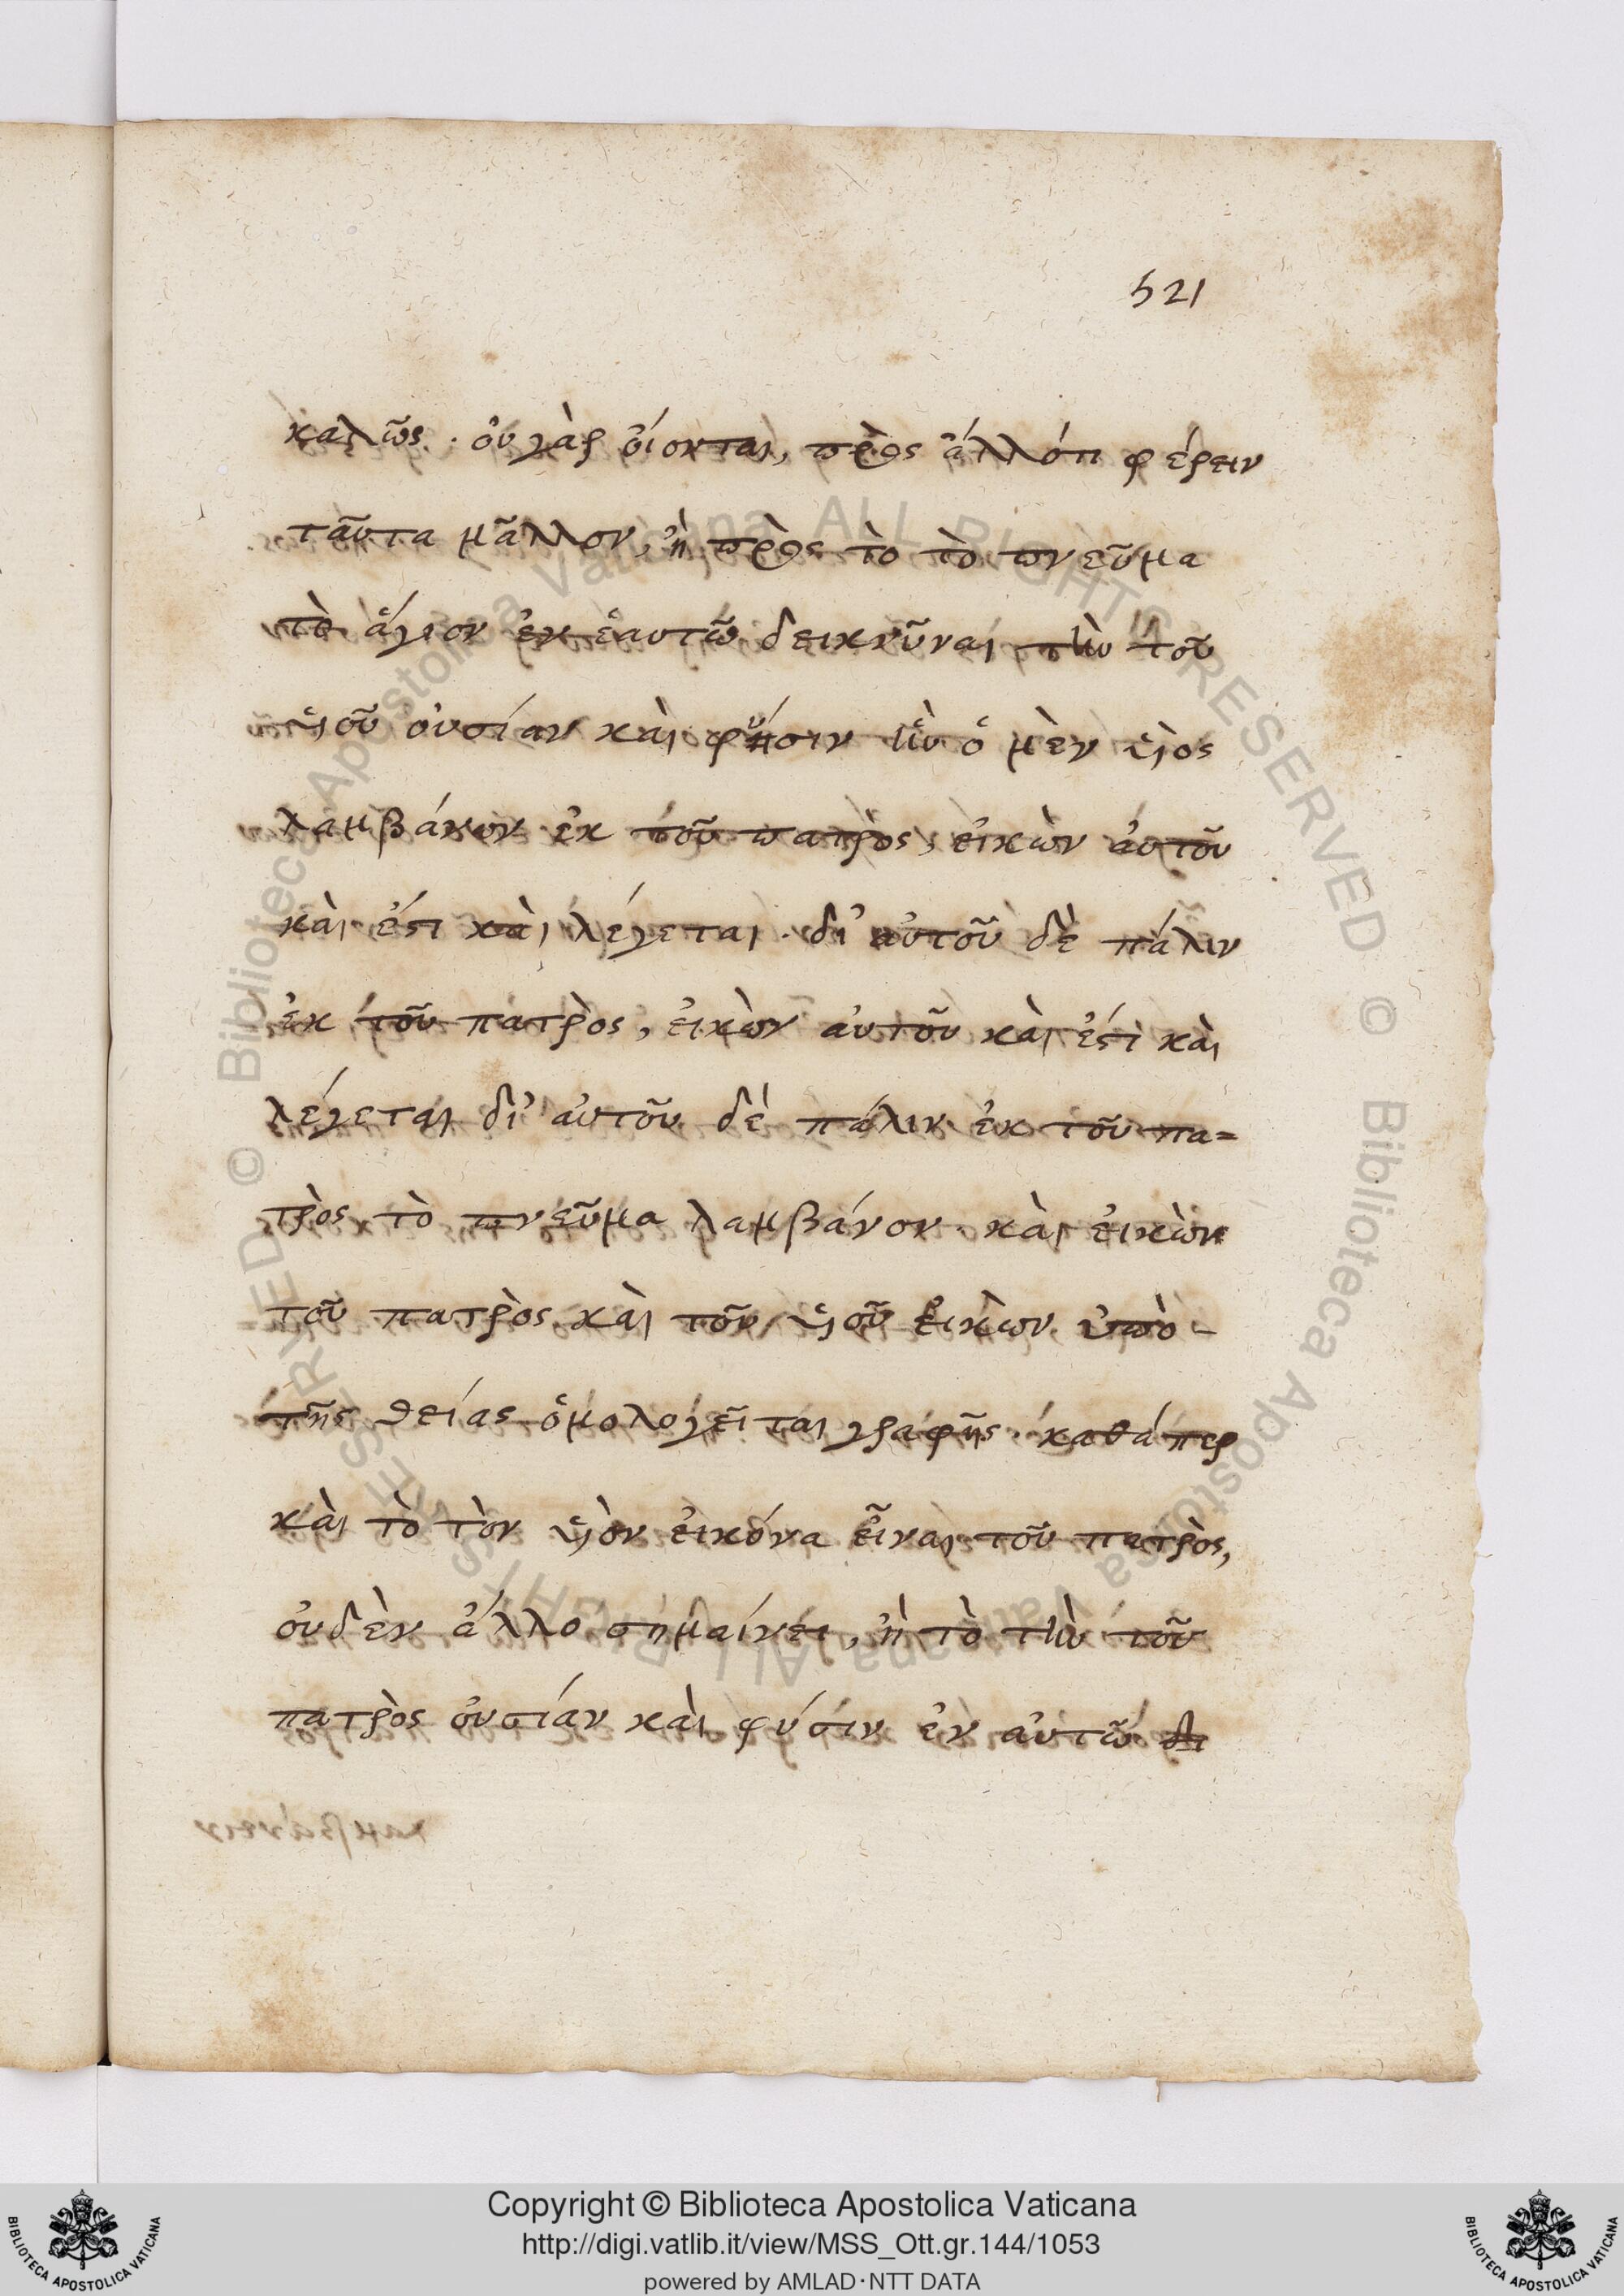 521
καλῶς. οὐ γὰρ οἴονται, πρὸς ἀλλότι φέρειν
ταῦτα μᾶλλον, ἢ πρὸς τὸ τὸ πνεῦμα
τὸ ἅγιον ἐν ἑαυτῶ δεικνῦναι τὴν τοῦ
υἱοῦ οὐσίαν καὶ φύσιν ἣν ὁ μὲν υἱὸς
λαμβάνων ἐκ τοῦ πατρὸς, εἰκὼν αὐτοῦ
καὶ ἐστὶ καὶ λέγεται. δι' αὐτοῦ δὲ πάλιν
ἐκ τοῦ πατρὸς, εἰκὼν αὐτοῦ καὶ ἐστὶ καὶ
λέγεται δι' αὐτοῦ δὲ πάλιν ἐκ τοῦ πα=
τρὸς τὸ πνεῦμα λαμβάνον. καὶ εἰκὼν
τοῦ πατρὸς καὶ τοῦ υἱοῦ εἰκὼν ὑπὸ -
τῆς θείας ὁμολογεῖται γραφῆς. καθάπερ
καὶ τὸ τὸν υἱὸν εἰκόνα εἶναι τοῦ πατρὸς,
οὐδὲν ἄλλο σημαίνει, ἢ τὸ τὴν τοῦ
πατρὸς οὐσίαν καὶ φύσιν ἐν αὐτῶ
Copyright © Biblioteca Apostolica Vaticana
http://digi.vatlib.it/view/MSS_Ott.gr.144/1053
powered by AMLAD·NTT DATA
BIBLIOTECA APOSTOLICA VATICANA
BIBLIOTECA APOSTOLICA VATICANA
© Biblioteca Apostolica Vaticana ALL RIGHTS RESERVED
© Biblioteca Apostolica Vaticana ALL RIGHTS RESERVED